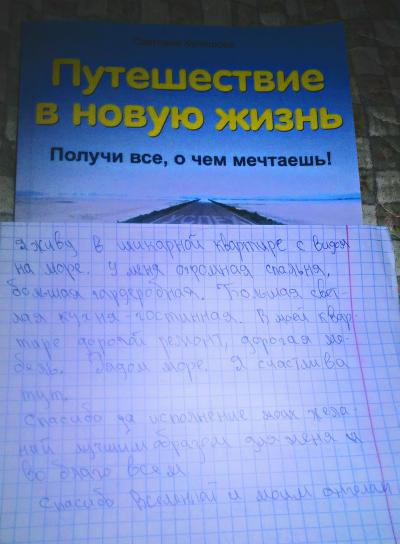 Светлана Кулешова
Путешествие
в новую жизнь
Получи все, о чем мечтаешь!
УСПЕХ
Я живу в шикарной квартире с видом
на море. У меня огромная спальня,
большая гардеробная. Большая свет-
лая кухня-гостинная. В моей квар-
тире дорогой ремонт, дорогая ме-
бель. Рядом море. Я счастлива
тут.
Спасибо за исполнение моих жела-
ний лучшим образом для меня и
во благо всем
Спасибо Вселенной и моим ангелам